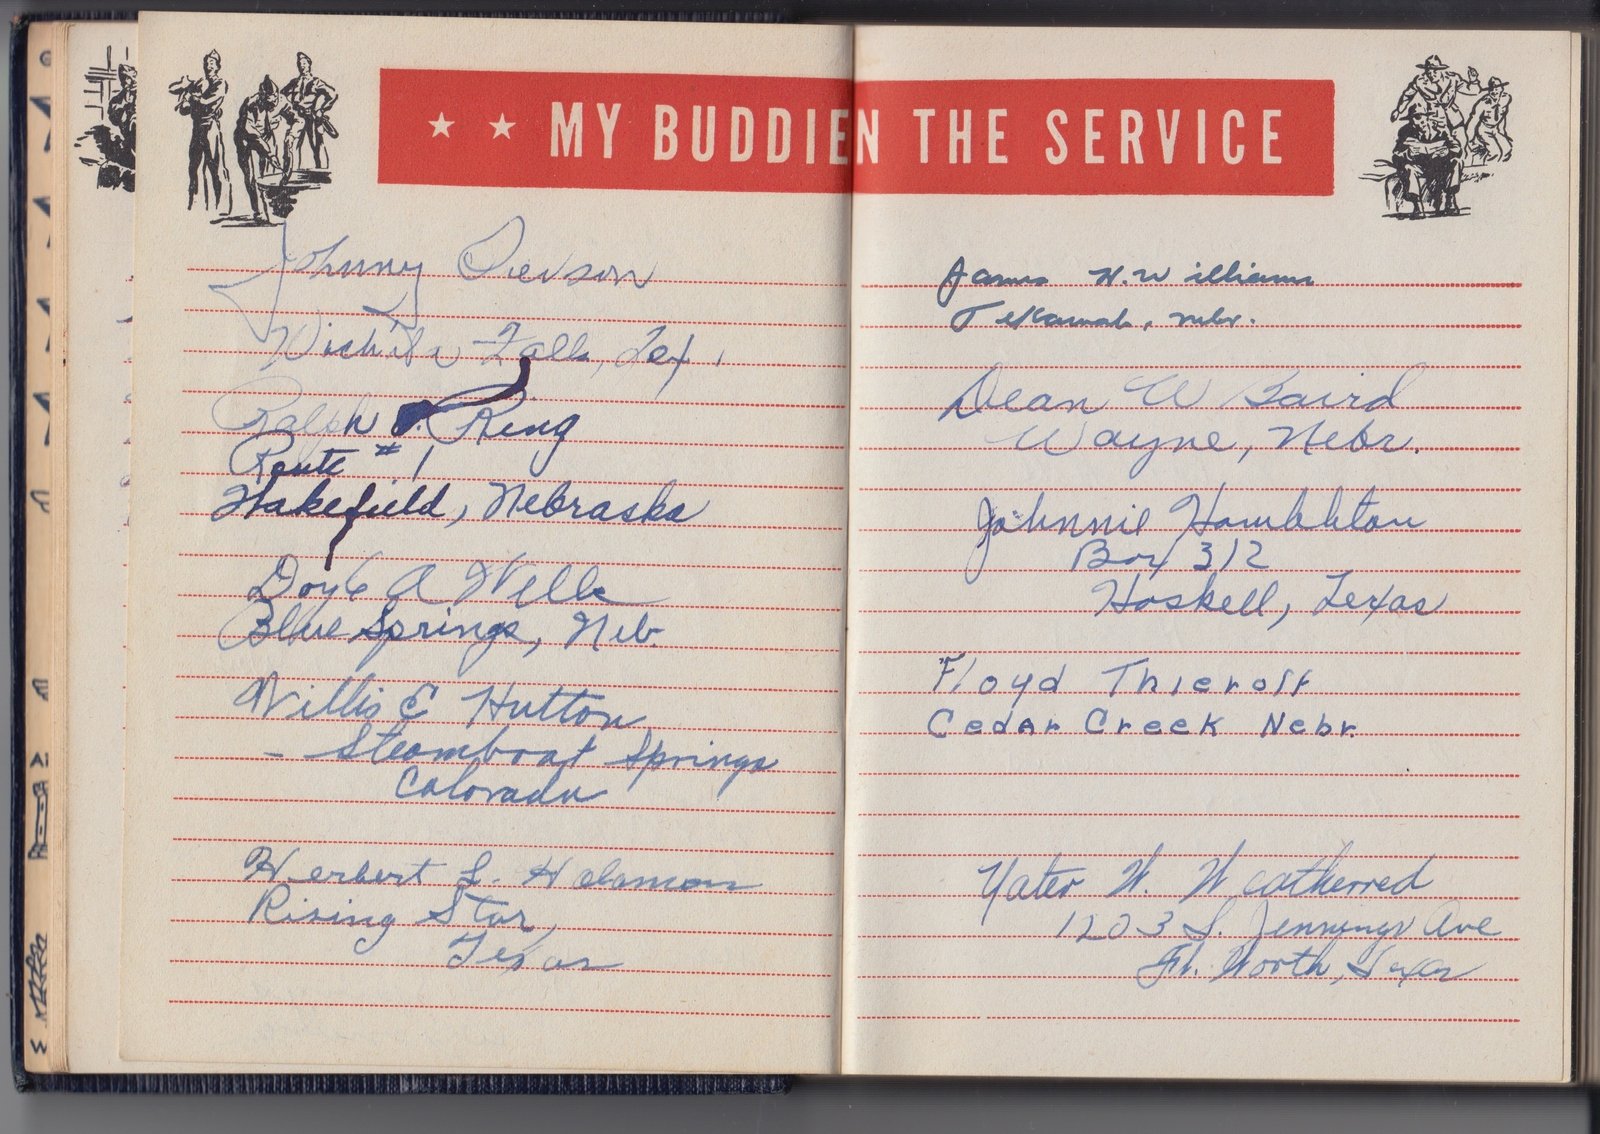 ★ ★ MY BUDDIE
Johnny
Wichita Falls, Tex.
Ralph Ring
Route #1
Wakefield, Nebraska
Doyle A Wells
Blue Springs, Neb.
Willis E Hutton
- Steamboat Springs
Colorado
Herbert L.
Rising Star,
Texas
N THE SERVICE
James H. Williams
Tekamah, Nebr.
Dean W Baird
Wayne, Nebr.
Johnnie
Box 312
Haskell, Texas
Floyd Thierolf
Cedar Creek Nebr.
W. Weatherred
1203 S. Jennings Ave
Ft. Worth, Texas